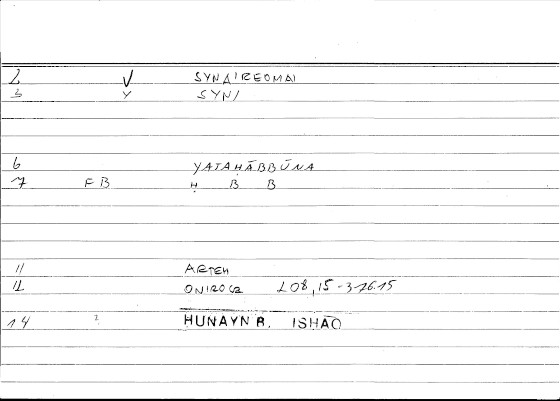 2 √ SYNAIREOMAI
3 Y SYN/
6 YATAḤĀBBŪNA
7 FB Ḥ B B
11 ARTEM
12 ONIROCR 208,15-376.15
14 2 HUNAYN B. ISHĀQ